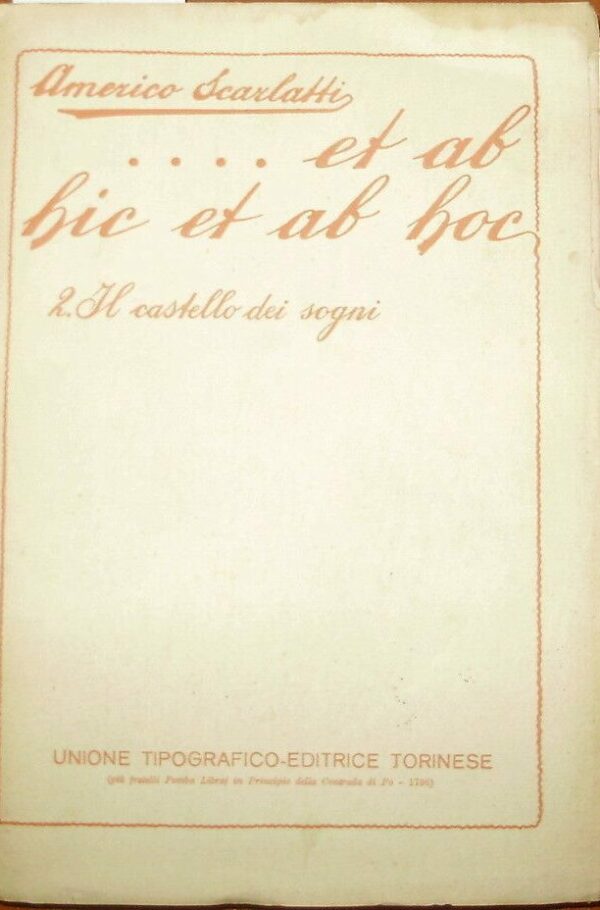 Americo Scarlatti
.... et ab
hic et ab hoc
2. Il castello dei sogni
UNIONE TIPOGRAFICO-EDITRICE TORINESE
(già fratelli Pomba Librai in Principio della Contrada di Po - 1796)